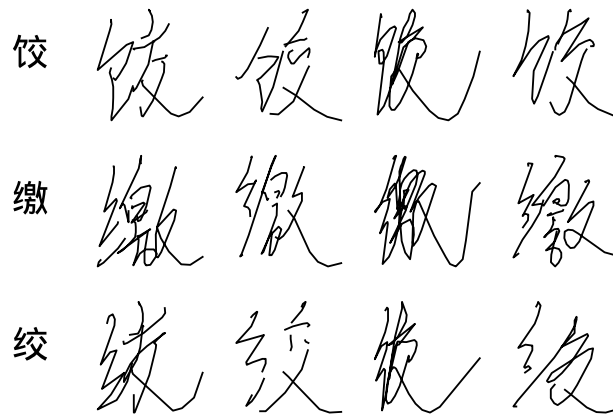 饺 饺 饺 饺 饺
缴 缴 缴 缴 缴
绞 绞 绞 绞 绞